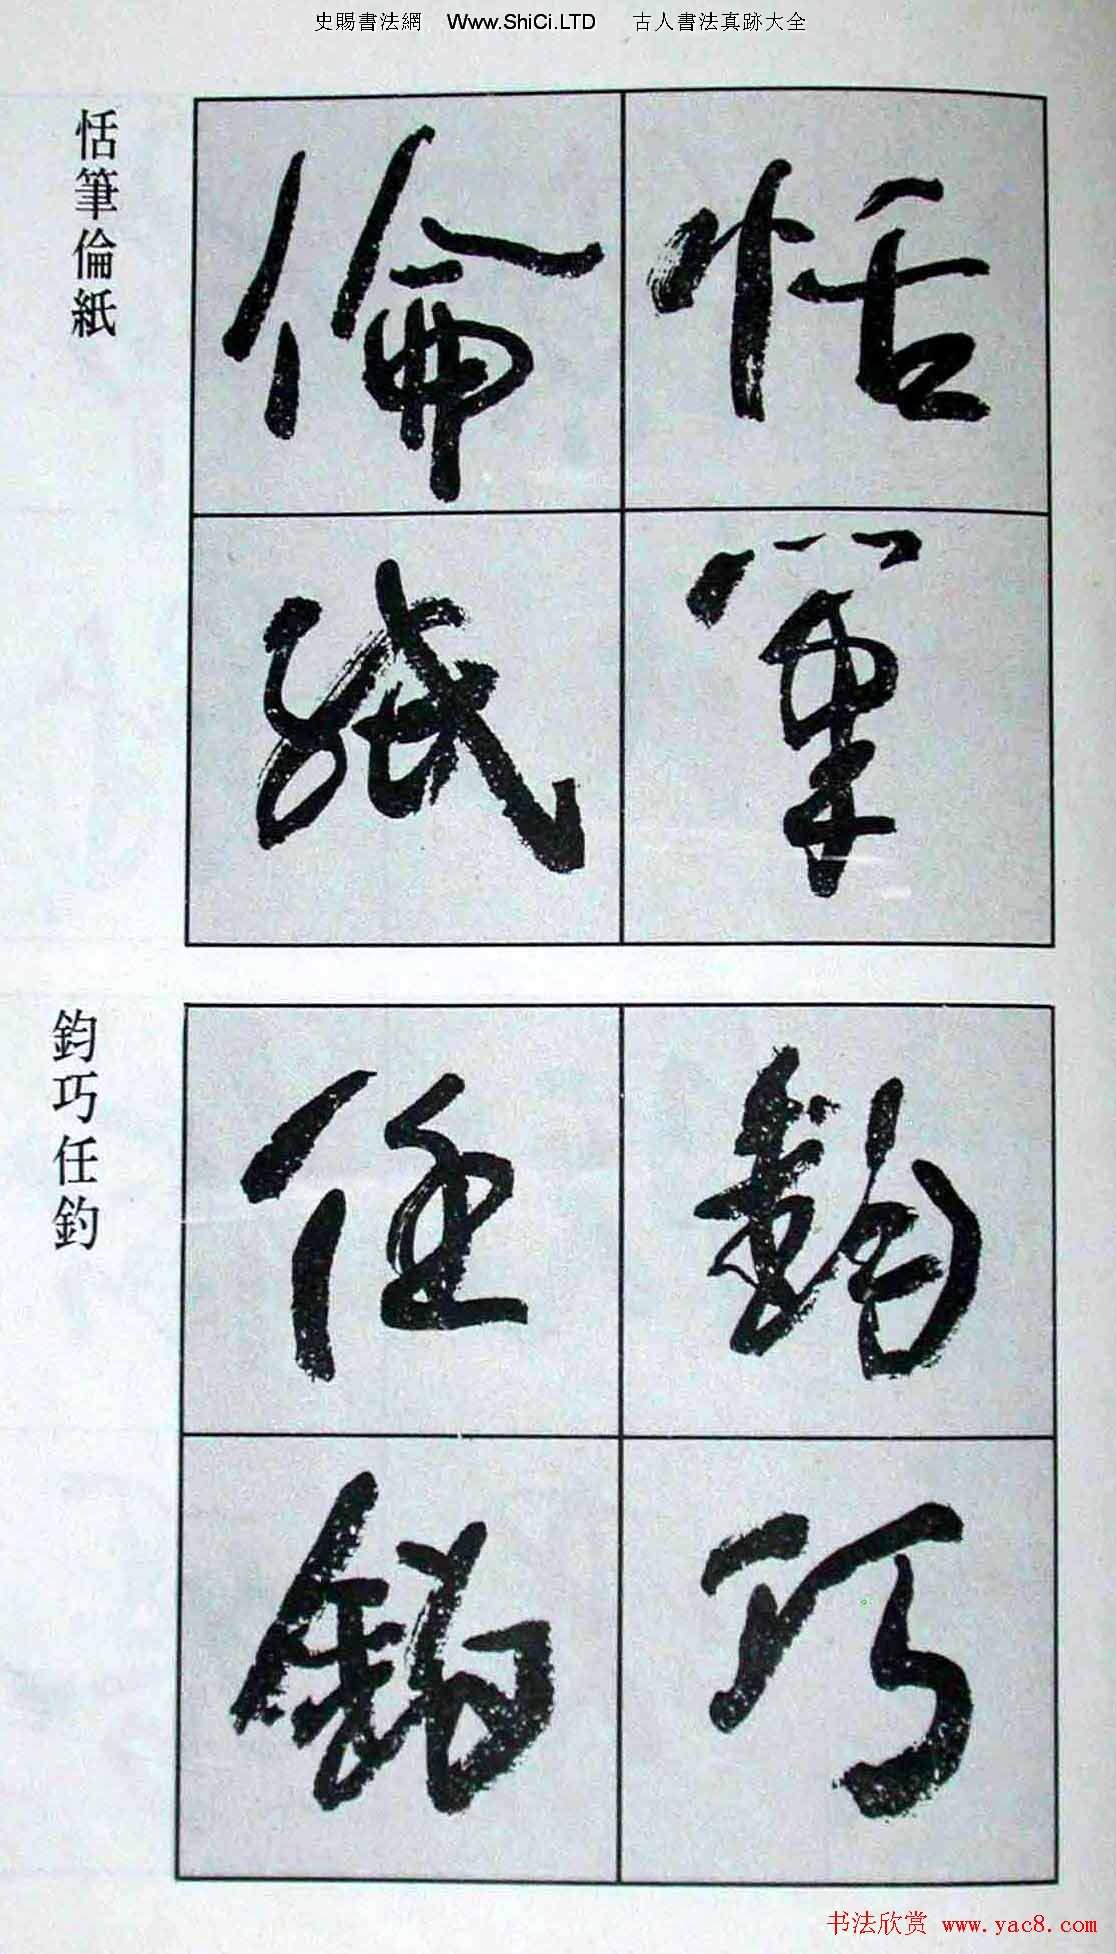 史賜書法網 Www.ShiCi.LTD 古人書法真跡大全
恬筆
倫紙
恬筆倫紙
鈞巧
任釣
鈞巧任釣
书法欣赏 www.yac8.com